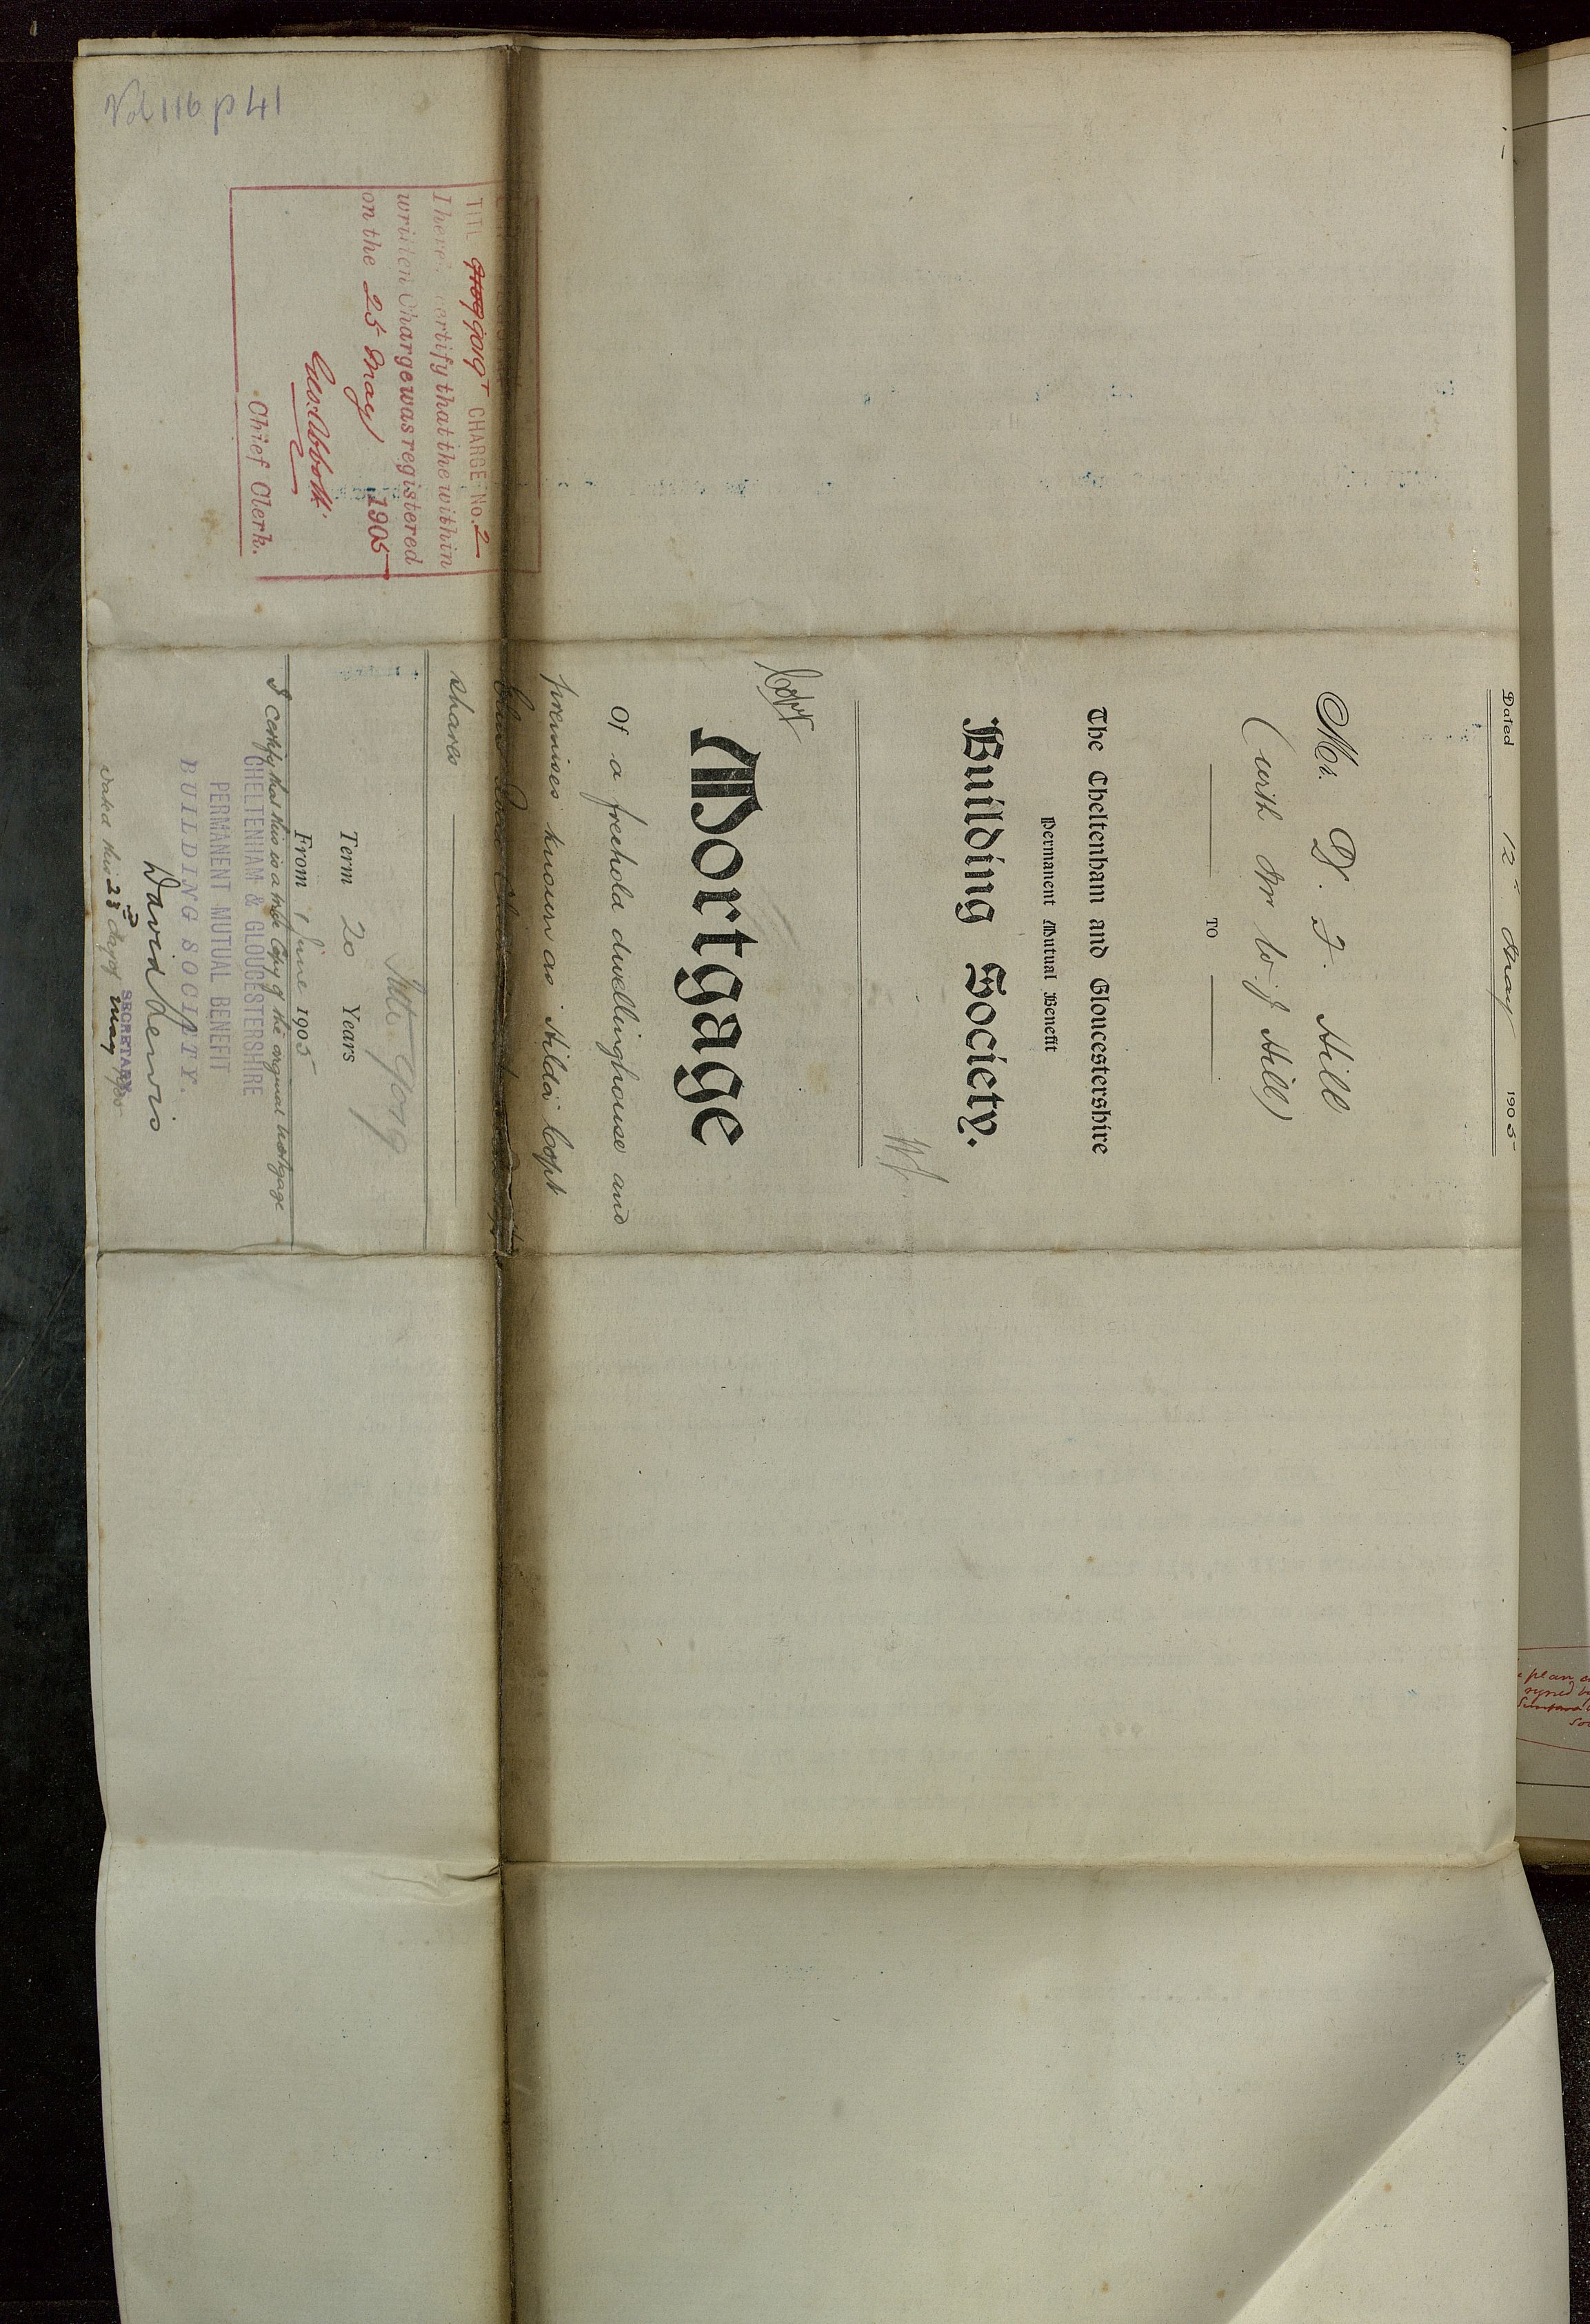 Dated 12th May 1905
Mr. D. F. Hill
(with Mr W. J. Hill)
TO
The Cheltenham and Gloucestershire
Permanent Mutual Benefit
Building Society.
Copy
Mortgage
Of a freehold dwellinghouse and
premises known as Hilda Copt
shares
Title 9019
Term 20 Years
From 1 June 1905
I certify that this is a true Copy of the original Mortgage
CHELTENHAM & GLOUCESTERSHIRE
PERMANENT MUTUAL BENEFIT
BUILDING SOCIETY.
David Lewis
SECRETARY
Dated this 23rd day of May
Vol 116 p 41
TITL 9019 CHARGE No. 2
I here certify that the within
written Charge was registered
on the 25 May 1905
Geo: Abbott
Chief Clerk.
plan
signed